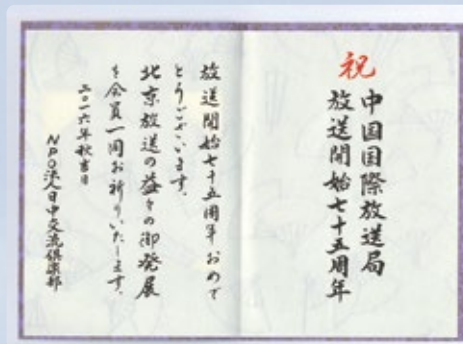 祝
中国国際放送局
放送開始七十五周年
放送開始七十五周年おめで
とうございます。
北京放送の益々の御発展
を会員一同お祈りいたします。
二〇一六年秋吉日
NPO法人日中交流倶楽部